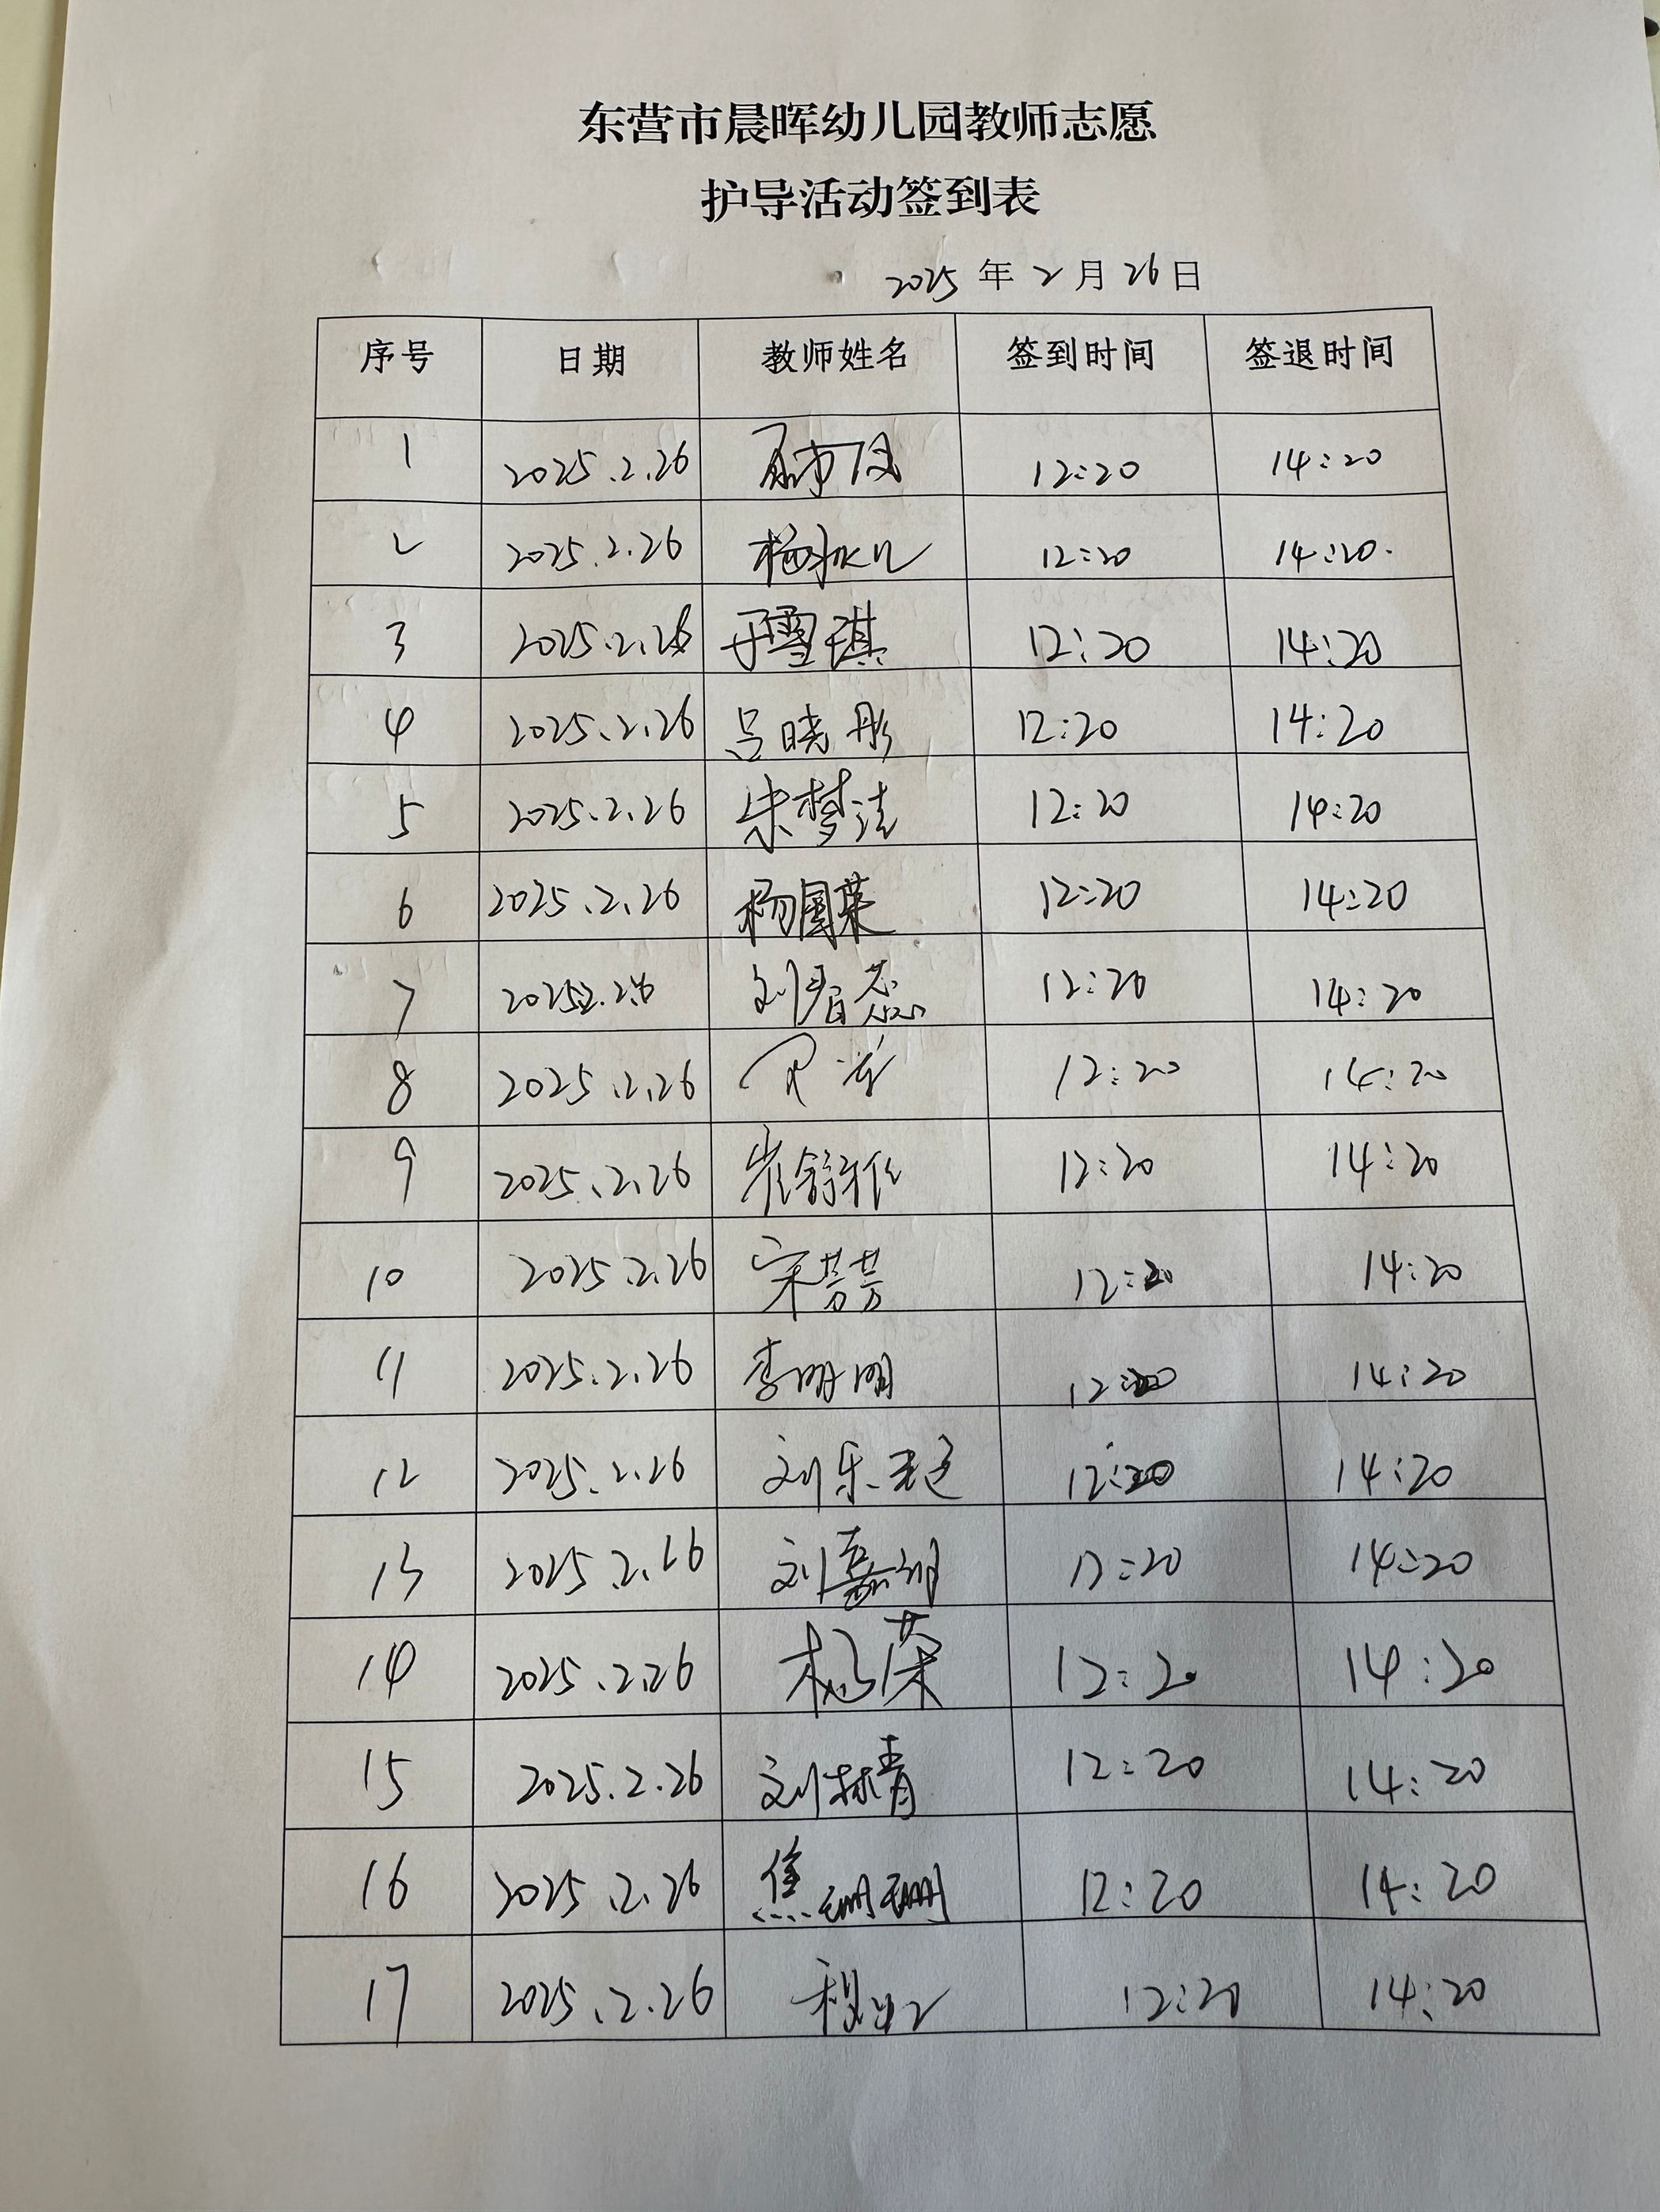 东营市晨晖幼儿园教师志愿
护导活动签到表
2025年2月26日
序号 日期 教师姓名 签到时间 签退时间
1 2025.2.26 12:20 14:20
2 2025.2.26 12:20 14:20.
3 2025.2.26 于雪琪 12:20 14:20
4 2025.2.26 吕晓彤 12:20 14:20
5 2025.2.26 朱梦洁 12:20 14:20
6 2025.2.26 杨国荣 12:20 14:20
7 2025.2.26 刘春蕊 12:20 14:20
8 2025.2.26 12:20 14:20
9 2025.2.26 崔舒雅 12:20 14:20
10 2025.2.26 宋芸芸 12:20 14:20
11 2025.2.26 李明明 12:20 14:20
12 2025.2.26 刘乐 12:20 14:20
13 2025.2.26 刘嘉 12:20 14:20
14 2025.2.26 杨荣 12:20 14:20
15 2025.2.26 刘林青 12:20 14:20
16 2025.2.26 焦珊珊 12:20 14:20
17 2025.2.26 12:20 14:20